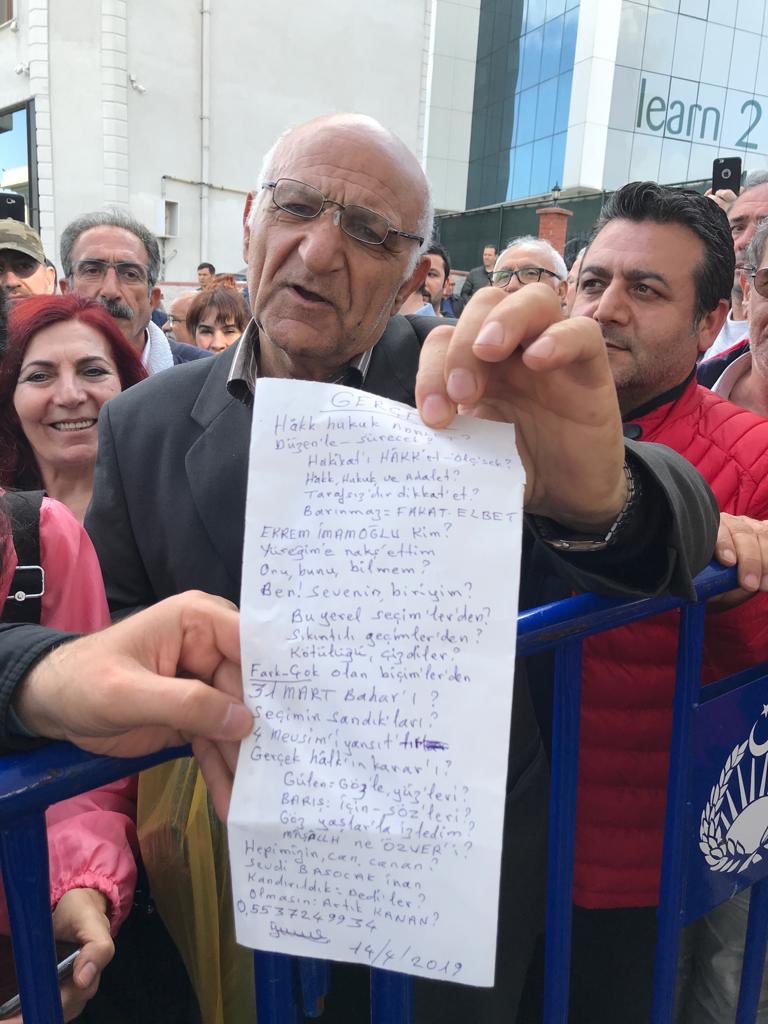 learn 2
Hâkk hukuk
Düzen'le - sürecek?
Hakikat'ı HÂKK'et - Ölçisek?
Hakk, Hukuk, ve Adalet?
Tarafsız'dır dikkat'et?
Barınmaz = FAKAT - ELBET
EKREM İMAMOĞLU Kim?
Yüreğim'e nakş'ettim
Onu, bunu, bilmem?
Ben! Sevenin, bir'iyim?
Bu yerel seçim'ler'den?
Sıkıntılı geçimler'den?
Kötülüğü, Çizdiler?
Fark-Çok olan biçim'ler'den
31 MART Bahar'ı?
Seçimin sandık'ları?
4 Mevsim'i yansıt
Gerçek hâlk'ın karar'ı?
Gülen = Göz'le, yüz'leri?
BARIŞ = için - söz'leri?
Göz yaşlar'la izledim?
MAŞALLH ne "ÖZVER"i?
Hepimizin, can, canan?
Sevdi BAŞOCAK inan
Kandırıldık = Dedi'ler?
Olmasın = Artık KANAN?
0,5537249934
14/4/2019